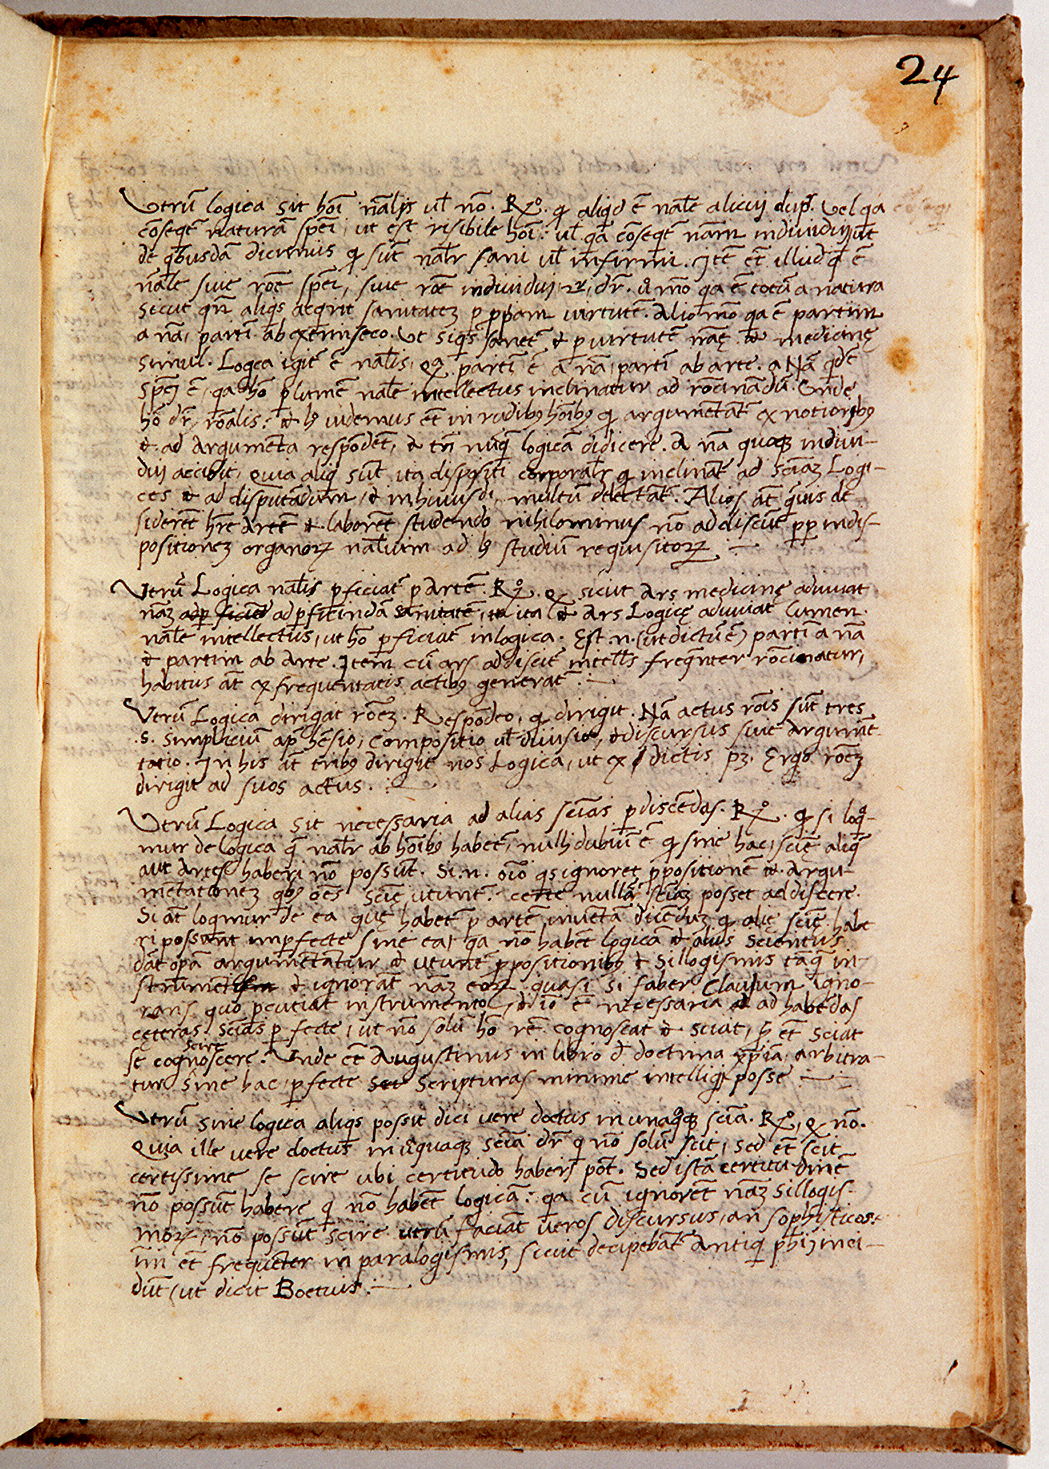 24
Utrū logica sit hoī nālis ul̄ nō. R̄o. q̄ aliqd ē nāle alicui dup̄r. Vel qa
cōseqt̄ naturā spēi, ut est risibile hoī: ul̄ qa cōseqt̄ nām individui, ut
de qbusdā dicimus q̄ sūt nālr sani ul̄ infirmi. Itē ēt illud q̄ ē
nāle sive rōe spēi, sive rōe individui, dr̄. uno mō qa ē totū a natura
sicut qn̄ aliqs aeqrit sanitatez p̄ p̄pam virtutē. Alio mō qa ē partim
a nā, partī ab extrinseco. Ut siqs sanet̄ & p virtutē nāę & medicinę
simul. Logca igit̄ ē nālis, qa partī ē a nā, partī ab arte. a Nā qdē
spēi ē, qa hō p lumē nāle intellectus inclinatur ad rōcinādū. Unde
hō dr̄ rōalis: & hc videmus ēt in rudibq hōibq q̄ argumētāt̄ ex notioribq
& ad argumēta respōdēt, & tn̄ nūq logicā didicere. A nā quoqq indivi-
dui accidit, quia aliq sūt ita dispositi corporalr q̄ inclināt̄ ad sciāz Logi-
ces & ad disputādum, & in huiusdi multū delectāt̄. Alios āt qvis de-
siderēt hr̄e Artē & laborēt studendo nihilominus nō adiscūt pp̄ indis-
positionez organorz nālium ad hc studiū requisitorz
Utrū Logica nālis pficiat̄ p Artē. R̄o. q̄ sicut Ars medicinę adiuvat
nāz ad pficiēdā sanitatē, ita & Ars Logicę adiuvat Lumen
nāle intellectus, ut hō pficiat̄ in logica. Est. n. (ut dictū ē) partī a nā
& partim ab Arte. Item cū ars addiscit̄ intell̄s freqnter rōcinatur,
habitus āt ex frequentatis actibq generat̄
Utrū Logica dirigat rōez. Respōdeo, q̄ dirigit. Nā actus rōis sūt tres
.s. simplicium apphēsio, compositio ul̄ divisio, & discursus sive argumē-
tatio. In his āt tribq dirigit nos Logica, ut ex dictis pz. Ergo rōez
dirigit ad suos actus.
Utrū Logica sit necessaria ad alias sciās pdiscēdas. R̄o. q̄ si loq-
mur de logica q̄ nālr ab hōibq habet̄, nulli dubiū ē q̄ sine hac, sciē aliq
aut Artes haberi nō possūt. Si. n. oīo qs ignoret ppositionē & Argu-
mētationez qbq oēs sciē utunt̄ certe nullā sciāz posset addiscere.
Si āt loqmur de ea quę habet̄ p artē inuētā dicēdūz q̄ alię scię habe-
ri possunt imp̄fecte sine ea, qa nō habēt logicā & aliis sciētiis
dāt opā argumētātur & utunt̄ ppositionibq & sillogismis tāq in-
strumētis & ignorāt nāz eorz. quasi si faber Claudum igno-
rans quo pcutiat instrumēto, & iō ē necessaria ad habēdas
ceteras sciās pfecte, ut nō solū hō rē cognoscat & sciat, s ēt sciat
scire
se cognoscere. Unde ēt Augustinus in libro d doctrina xpiā, arbitra-
tur sine hac, pfecte Scripturas minime intelligi posse
Utrū sine logica aliqs possit dici vere doctus in unaqqq sciā. R̄o, q̄ nō.
Quia ille vere doctus in unaquaqq sciā dr̄ q̄ nō solū scit, sed ēt scit
certissime se scire ubi certitudo haberi pōt. Sed istā certitudinē
nō possūt habere q̄ nō habēt logicā: qa cū ignorēt nāz sillogis-
morz, nō possūt scire utrū faciāt veros discursus, an sophisticos:
īm̄ ēt frequēter in paralogismis, sicut decipiebāt̄ antiqi phī, inci-
dūt, ut dicit Boetius.